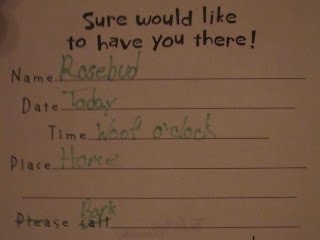 Sure would like
to have you there!
Name Rosebud
Date Today
Time Woof o'clock
Place Home
Bark
Please call